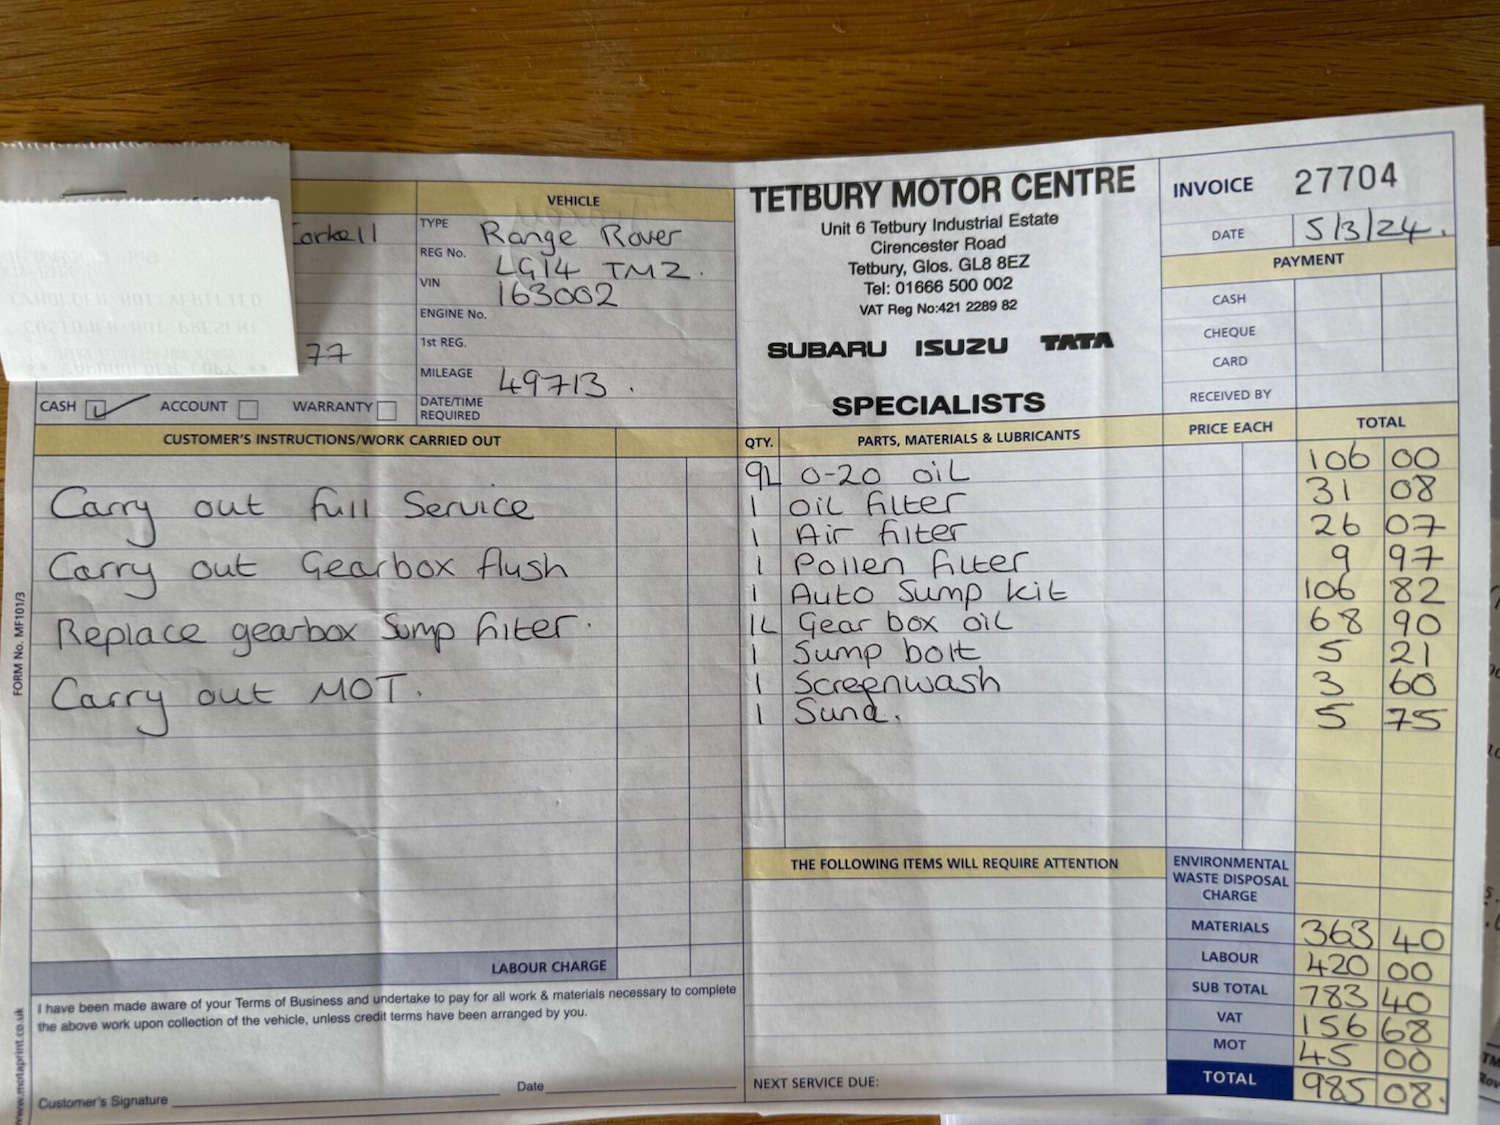 VEHICLE
Corkell
TYPE Range Rover
REG No. LG14 TMZ.
VIN 163002
ENGINE No.
1st REG.
77
MILEAGE 49713.
CASH ACCOUNT WARRANTY
DATE/TIME REQUIRED
TETBURY MOTOR CENTRE
Unit 6 Tetbury Industrial Estate
Cirencester Road
Tetbury, Glos. GL8 8EZ
Tel: 01666 500 002
VAT Reg No:421 2289 82
SUBARU ISUZU TATA
SPECIALISTS
INVOICE 27704
DATE 5/3/24.
PAYMENT
CASH
CHEQUE
CARD
RECEIVED BY
CUSTOMER'S INSTRUCTIONS/WORK CARRIED OUT
Carry out full Service
Carry out Gearbox flush
Replace gearbox Sump filter.
Carry out MOT.
LABOUR CHARGE
I have been made aware of your Terms of Business and undertake to pay for all work & materials necessary to complete
the above work upon collection of the vehicle, unless credit terms have been arranged by you.
Customer's Signature Date
FORM No. MF101/3
www.motaprint.co.uk
QTY. PARTS, MATERIALS & LUBRICANTS PRICE EACH TOTAL
9L 0-20 oil 106 00
1 Oil filter 31 08
1 Air filter 26 07
1 Pollen filter 9 97
1 Auto Sump kit 106 82
1L Gear box oil 68 90
1 Sump bolt 5 21
1 Screenwash 3 60
1 Sund. 5 75
THE FOLLOWING ITEMS WILL REQUIRE ATTENTION
NEXT SERVICE DUE:
ENVIRONMENTAL
WASTE DISPOSAL
CHARGE
MATERIALS 363 40
LABOUR 420 00
SUB TOTAL 783 40
VAT 156 68
MOT 45 00
TOTAL 985 08.